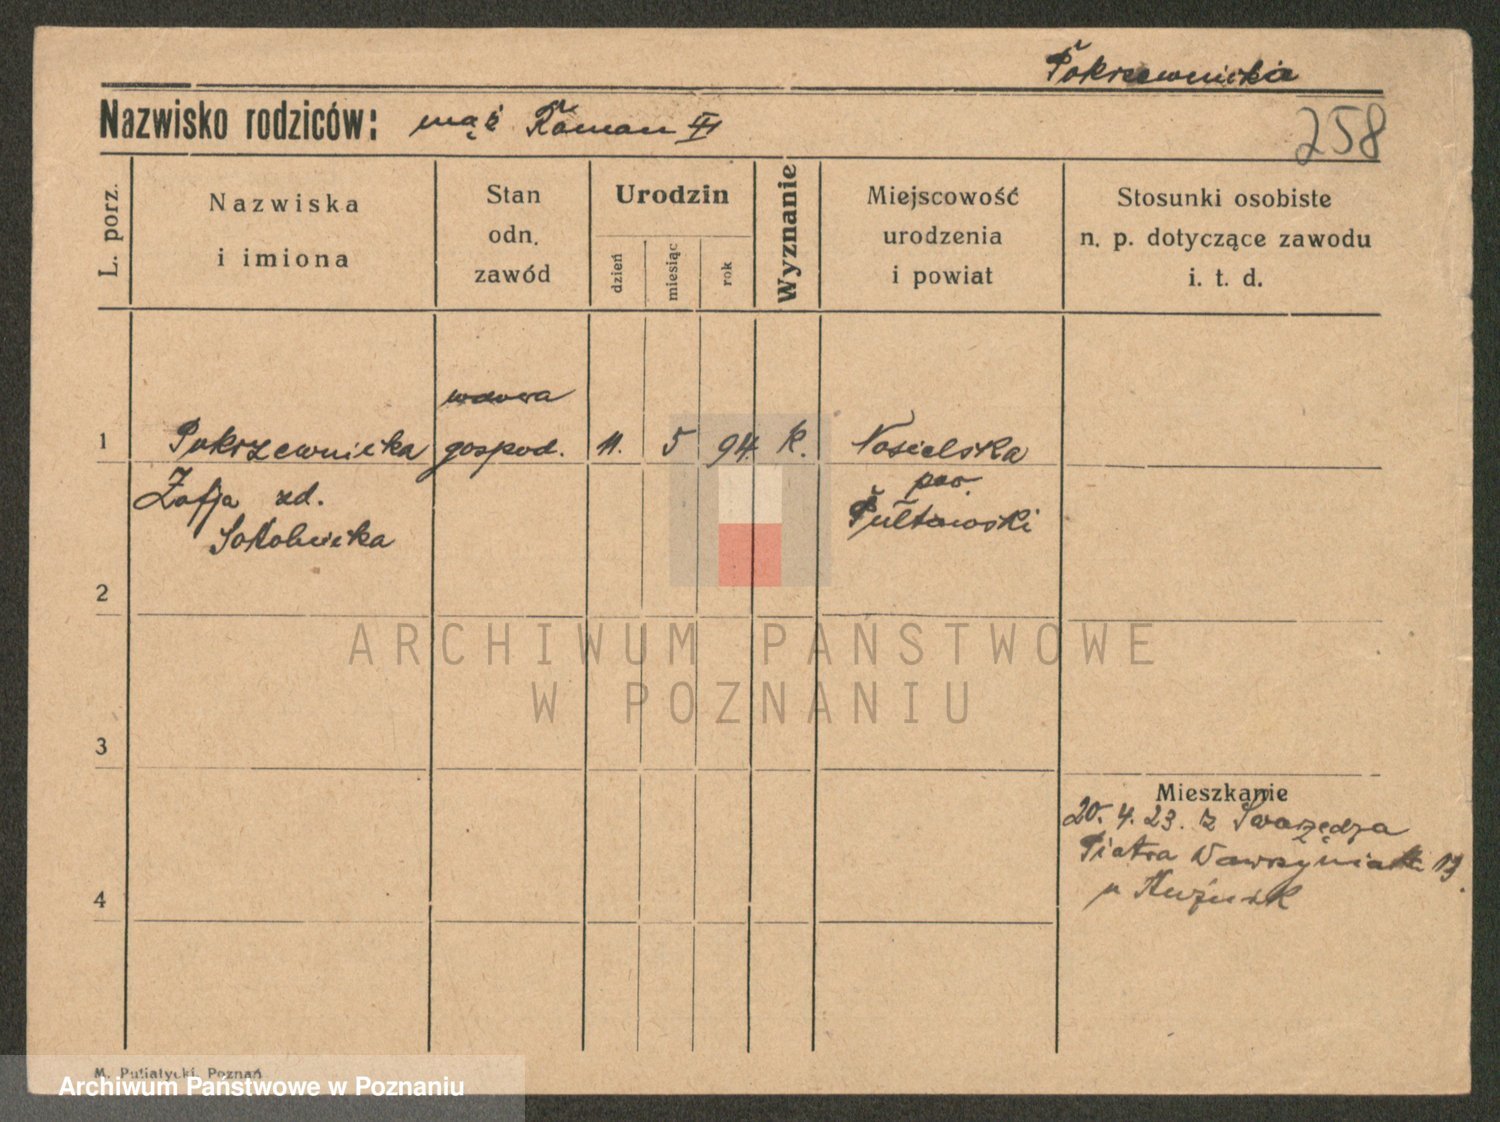 Pokrzewnicka
Nazwisko rodziców: mąż Roman II
258
L. porz.
Nazwiska
i imiona
Stan
odn.
zawód
Urodzin
dzień
miesiąc
rok
Wyznanie
Miejscowość
urodzenia
i powiat
Stosunki osobiste
n. p. dotyczące zawodu
i. t. d.
wdowa
1 Pokrzewnicka gospod. 11. 5 94 k. Nosielska
Zofja zd. pow.
Sokolnicka Pułtawski
2
3
4
Mieszkanie
20. 4. 23. z Swarzędza
Piotra Wawrzyniaka 19.
u
ARCHIWUM PAŃSTWOWE
W POZNANIU
M. Putiatycki, Poznań
Archiwum Państwowe w Poznaniu